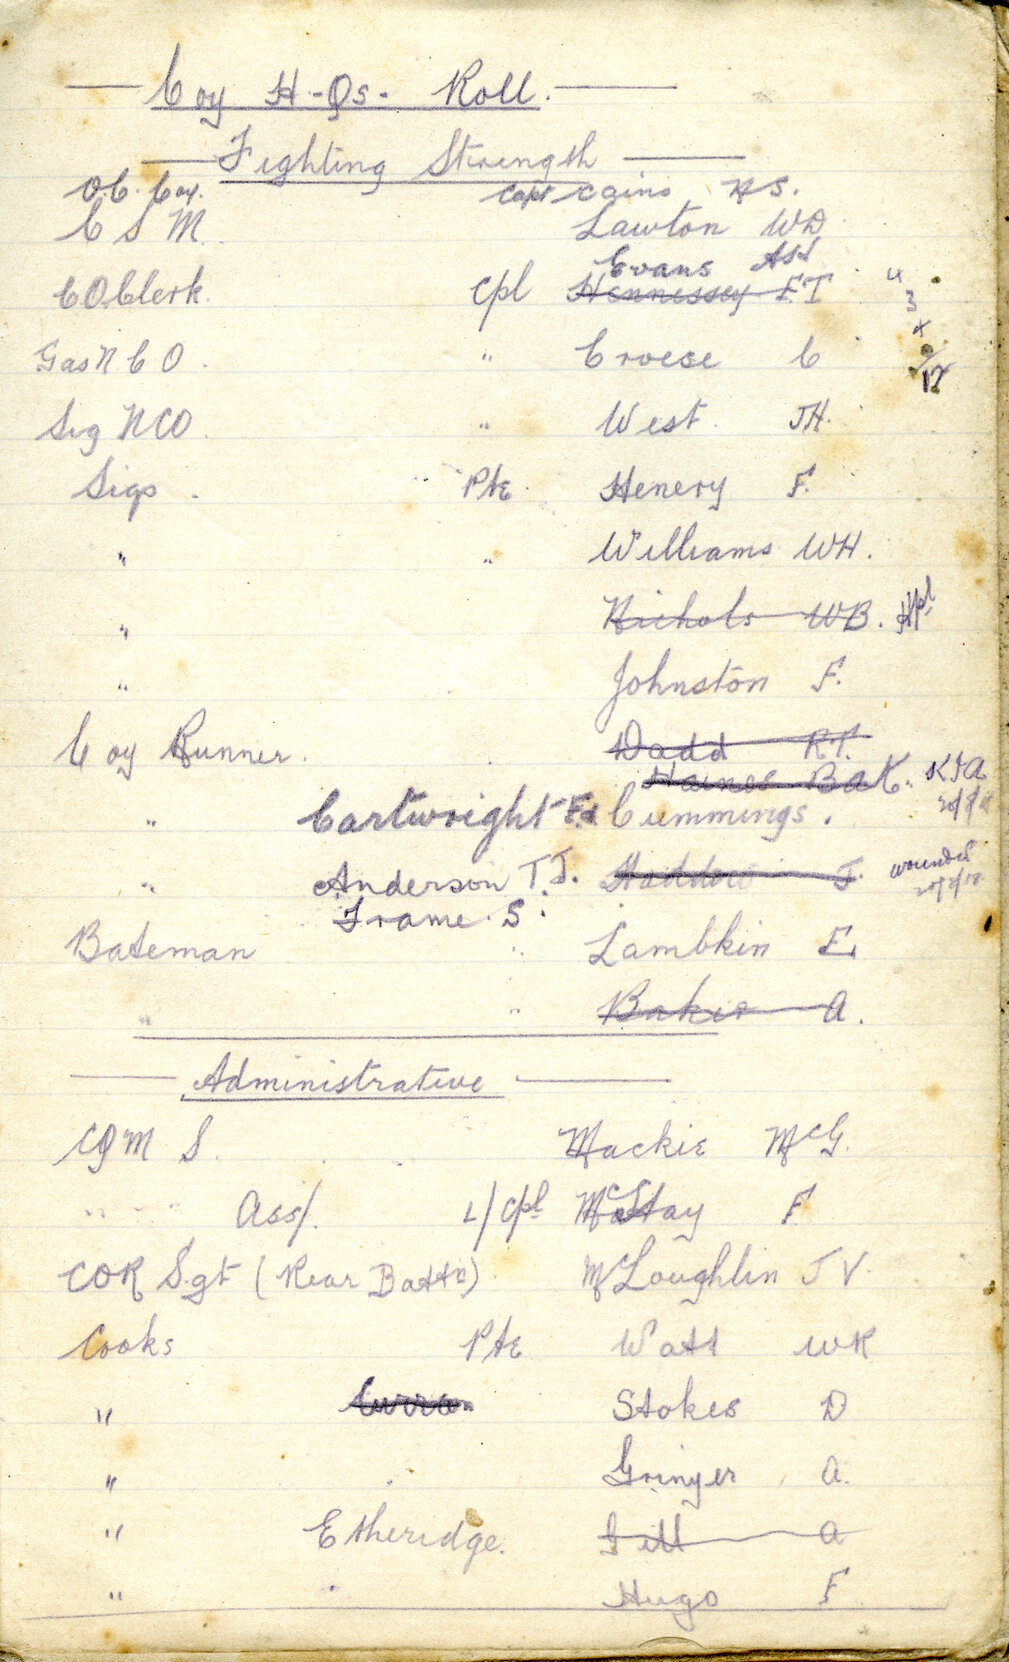 Coy H-Qs- Roll.
Fighting Strength
O.C. Coy. Capt Cains N S.
C S M. Lawton WD
Evans ASH
C O Clerk. Cpl Hennessey F T
4
3
x
12
Gas N C O. " Croese C
Sig NCO. " West. JH.
Sigs. Pte Henery F.
" " Williams WH.
" Nichols WB. Hpl
" Johnston F.
Coy Runner. Dadd R.T.
Haines BaK. KIA
" Cartwright Ed Cummings.
" Anderson T.J. Haddow J. wounded
Frame. S.
Bateman " Lambkin E
" " Baker A.
Administrative
CQM S. Mackie McG.
" " " Ass/. L/Cpl McStay F
COR Sgt (Rear Battn) McLoughlin J V.
Cooks Pte Watt WR
" Curran Stokes D
" Gringer A.
" Etheridge. Gill A
" Hugo F